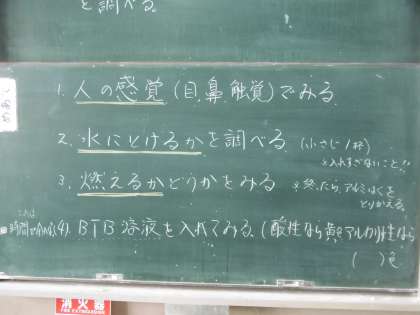 と調べる。
1. 人の感覚(目,鼻,触覚)でみる
2. 水にとけるかを調べる (小さじ1杯)
※入れすぎないこと!!
3. 燃えるかどうかをみる ※終ったら,アルミはくをとりかえる。
これは
(4). BTB溶液を入れてみる (酸性なら黄色アルカリ性なら
( )色
消火器
FIRE EXTINGUISHER